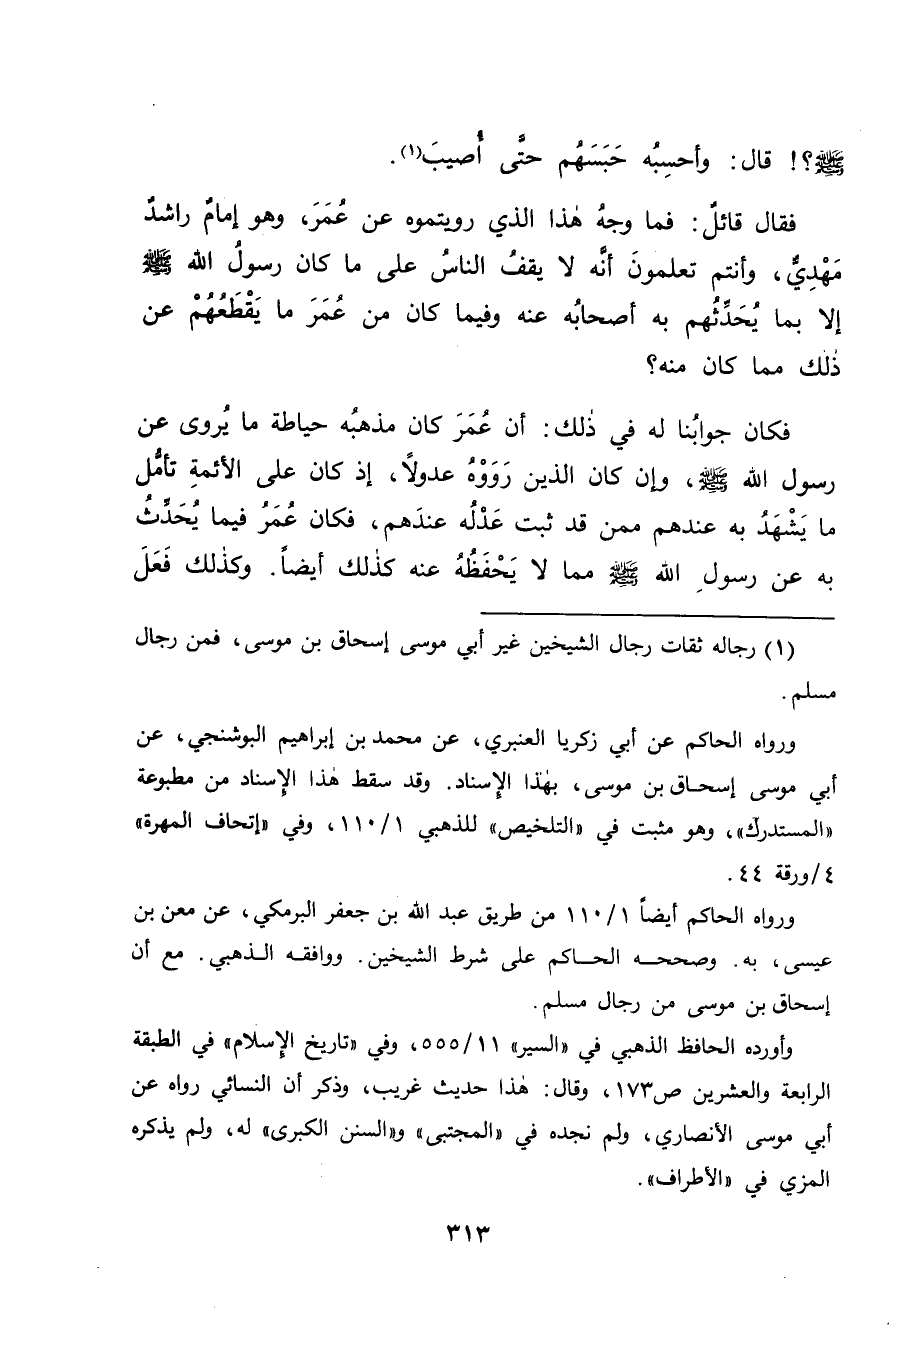 ﷺ؟! قال: وأحسِبُه حَبَسَهُم حتَّى أُصيبَ(١).
فقال قائلٌ: فما وجهُ هٰذا الذي رويتموه عن عُمَرَ، وهو إمامٌ راشدٌ
مَهْدِيٌّ، وأنتم تعلمونَ أنَّه لا يقفُ الناسُ على ما كان رسولُ الله ﷺ
إلا بما يُحَدِّثُهم به أصحابُه عنه وفيما كان من عُمَرَ ما يَقْطَعُهُمْ عن
ذٰلك مما كان منه؟
فكان جوابُنا له في ذٰلك: أن عُمَرَ كان مذهبُه حياطة ما يُروى عن
رسول الله ﷺ، وإن كان الذين رَوَوْهُ عدولاً، إذ كان على الأئمةِ تأمُّل
ما يَشْهَدُ به عندهم ممن قد ثبت عَدْلُه عندَهم، فكان عُمَرُ فيما يُحَدِّثُ
به عن رسولِ الله ﷺ مما لا يَحْفَظُهُ عنه كذٰلك أيضاً. وكذٰلك فَعَلَ
(١) رجاله ثقات رجال الشيخين غير أبي موسى إسحاق بن موسى، فمن رجال
مسلم.
ورواه الحاكم عن أبي زكريا العنبري، عن محمد بن إبراهيم البوشنجي، عن
أبي موسى إسحاق بن موسى، بهٰذا الإسناد. وقد سقط هٰذا الإسناد من مطبوعة
«المستدرك»، وهو مثبت في «التلخيص» للذهبي ١١٠/١، وفي «إتحاف المهرة»
٤/ورقة ٤٤.
ورواه الحاكم أيضاً ١١٠/١ من طريق عبد الله بن جعفر البرمكي، عن معن بن
عيسى، به. وصححه الحاكم على شرط الشيخين. ووافقه الذهبي. مع أن
إسحاق بن موسى من رجال مسلم.
وأورده الحافظ الذهبي في «السير» ٥٥٥/١١، وفي «تاريخ الإسلام» في الطبقة
الرابعة والعشرين ص١٧٣، وقال: هٰذا حديث غريب، وذكر أن النسائي رواه عن
أبي موسى الأنصاري، ولم نجده في «المجتبى» و«السنن الكبرى» له، ولم يذكره
المزي في «الأطراف».
٣١٣